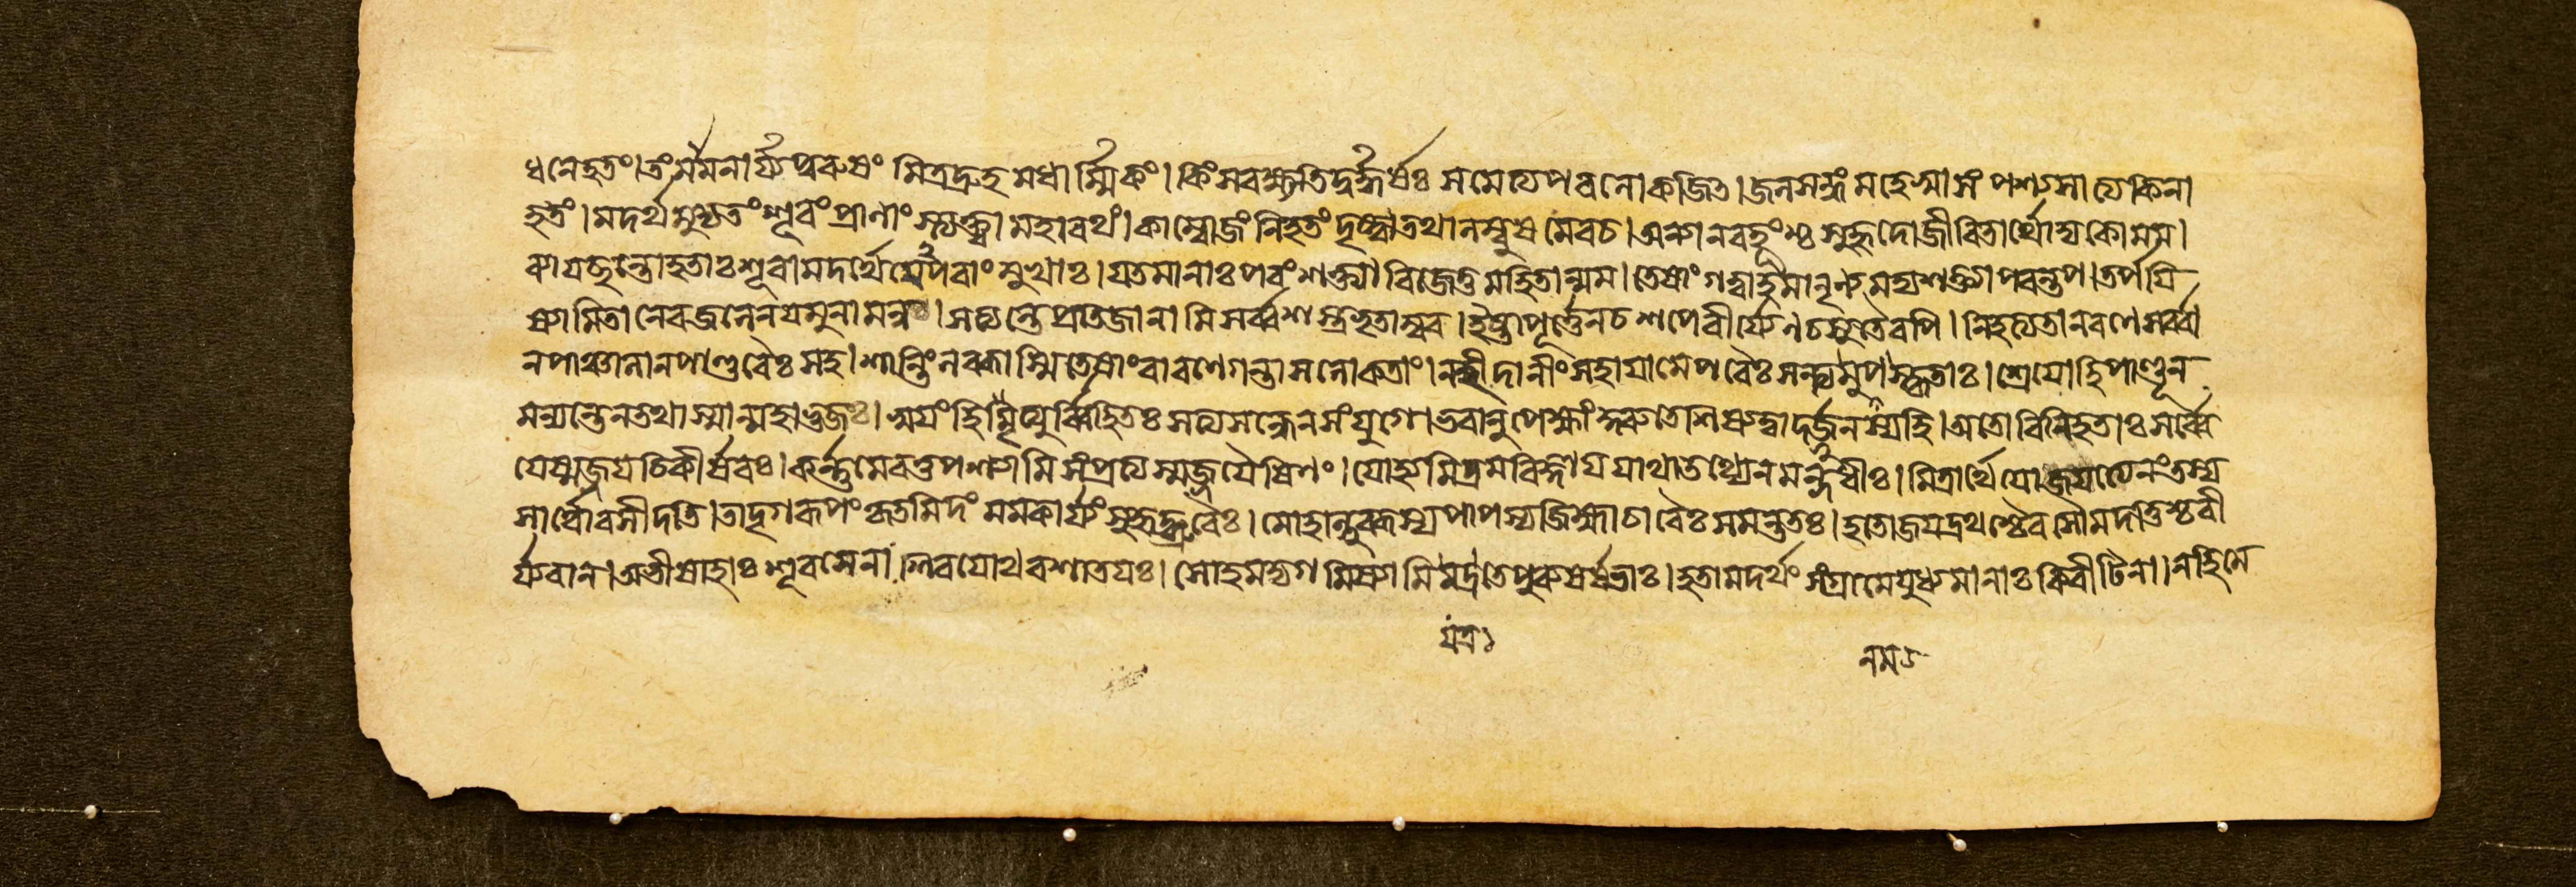 ধনেহতং। তং মামনার্য্যপুরুষং মিত্রদ্রুহমধার্ম্মিকং। কিংসবক্ষ্যতিদুর্দ্ধর্ষঃ সমেত্যপরলোকজিত। জলসন্ধং মহেষ্বাসং পশ্যসাত্যকিনা
হতং। মদর্থমুদ্যতংশূরংপ্রাণাংস্ত্যক্ত্বামহারথং। কাম্বোজংনিহতংদৃষ্ট্বাতথালম্বুষমেবচ। অন্যানবহূংশ্চসুহৃদোজীবিতার্থোদ্যকোমম।
ব্যাযচ্ছন্তোহতাঃশূরামদর্থেযেপরাংমুখাঃ। যতমানাঃপরংশক্ত্যাবিজেতুমহিতান্মম। তেষাংগত্বাহমানৃণ্যমদ্যশক্ত্যাপরন্তপ। তর্পযি
ষ্যামিতানেবজলেনযমুনামনু। সত্যন্তেপ্রতিজানামিসর্ব্বশস্ত্রভৃতাম্বর। ইষ্টাপূর্ত্তেনচশপেবীর্য্যেণচসুতৈরপি। নিহত্যতানরণেসর্ব্বা
নপাঞ্চালানপাণ্ডবৈঃসহ। শান্তিংলব্ধাস্মিতেষাংবারণেগন্তাসলোকতাং। নহীদানীংসহাযামেপরৈঃসন্ত্যনুপস্কৃতাঃ। শ্রেযোহিপাণ্ডূন
মন্যন্তেনতথাস্মান্মহাভুজঃ। স্বযংহিমৃত্যুর্ব্বিহিতঃসত্যসন্ধেনসংযুগে। ভবানুপেক্ষাংকুরুতেশিষ্যত্বাদর্জুনস্যহি। অতোবিনিহতাঃসর্ব্বে
যেস্মজ্জযচিকীর্ষবঃ। কর্ণ্ণমেবতুপশ্যামিসংপ্রত্যস্মজ্জযৈষিণং। যোহিমিত্রমবিজ্ঞাযযাথাতথ্যেনমন্দধীঃ। মিত্রার্থেযোজযত্যেনংতস্য
সোর্থোবসীদতি। তাদৃগরূপংকৃতমিদংমমকার্য্যংসুহৃদ্ব্রুবৈঃ। মোহাল্লুব্ধস্যপাপস্যজিহ্মাচারৈঃসমন্ততঃ। হতোজযদ্রথশ্চৈবসৌমদত্তিশ্চবী
র্য্যবান। অভীষাহাঃশূরসেনাঃশিবযোথবশাতযঃ। সোহমদ্যগমিষ্যামিযত্রতেপুরুষর্ষভাঃ। হতামদর্থংসংগ্রামেযুধ্যমানাঃকিরীটিনা। নহিমে
যত্র১